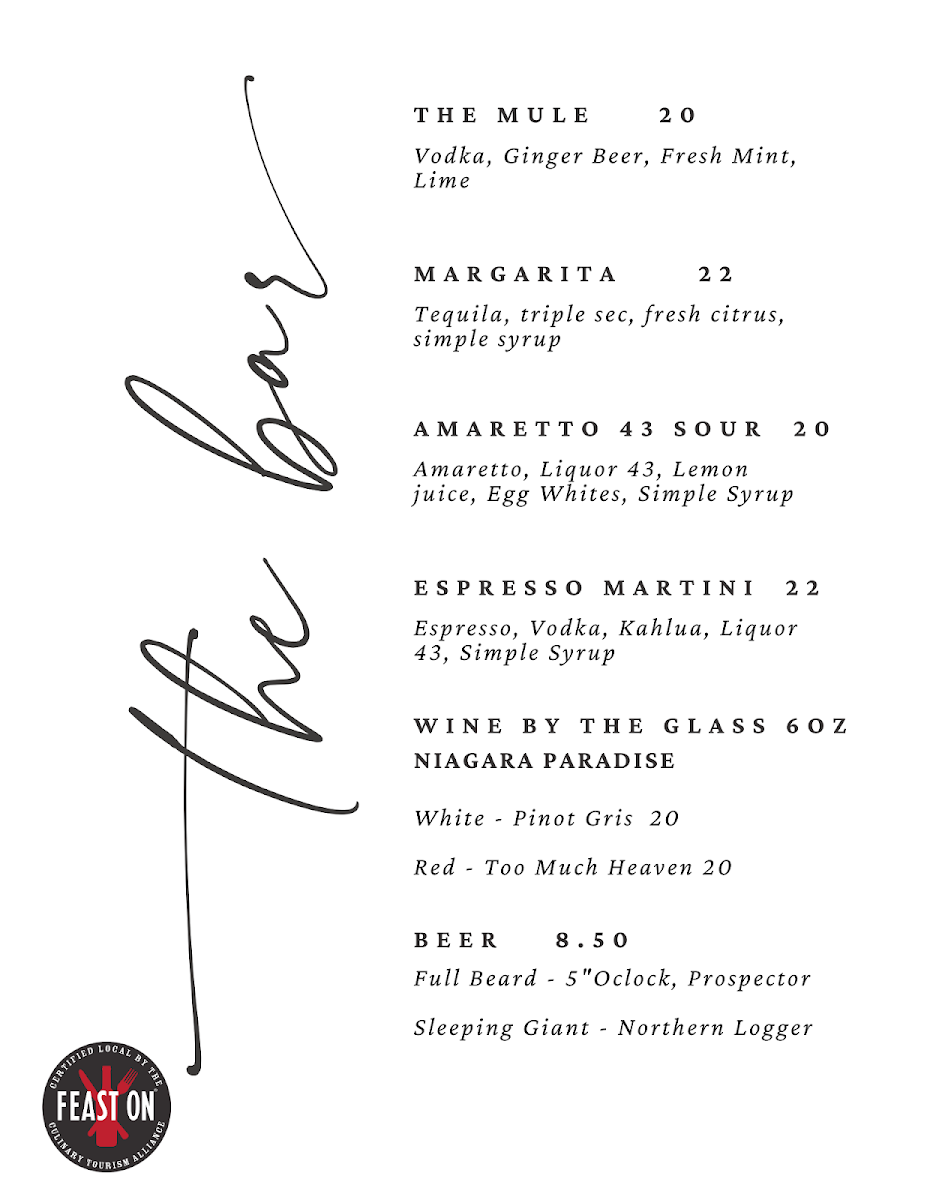 The bar
THE MULE 20
Vodka, Ginger Beer, Fresh Mint,
Lime
MARGARITA 22
Tequila, triple sec, fresh citrus,
simple syrup
AMARETTO 43 SOUR 20
Amaretto, Liquor 43, Lemon
juice, Egg Whites, Simple Syrup
ESPRESSO MARTINI 22
Espresso, Vodka, Kahlua, Liquor
43, Simple Syrup
WINE BY THE GLASS 6OZ
NIAGARA PARADISE
White - Pinot Gris 20
Red - Too Much Heaven 20
BEER 8.50
Full Beard - 5"Oclock, Prospector
Sleeping Giant - Northern Logger
CERTIFIED LOCAL BY THE
FEAST ON®
CULINARY TOURISM ALLIANCE